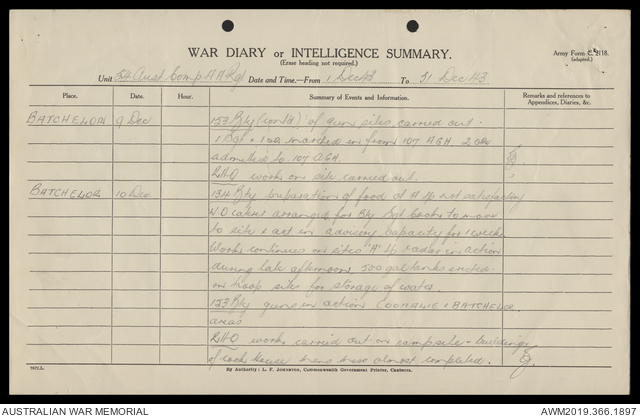 WAR DIARY or INTELLIGENCE SUMMARY.
(Erase heading not required.)
Army Form C. 2118.
(adapted.)
Unit 54 Aust Comp A A Reg Date and Time.—From 1 Dec 43 To 31 Dec 43
Place. Date. Hour. Summary of Events and Information. Remarks and references to Appendices, Diaries, &c.
BATCHELOR 9 Dec 153 Bty (cont'd) of gun sites carried out.
1 Bdr + 1 OR marched in from 107 AGH 2 ORs
admitted to 107 AGH.
RHQ works on site carried out.
BATCHELOR 10 Dec 134 Bty preparation of food at A Tp not satisfactory
W.O. caterer arranged for Bty Sgt Cooks to move
to site & act in advisory capacity for 1 week.
Works continues on sites "A" Tp radar in action
during late afternoon 500 gal tanks erected
on troop sites for storage of water.
153 Bty guns in action COOMALIE & BATCHELOR
areas
RHQ works carried out on campsite - buildings
of cook house mens mess almost completed.
By Authority: L. F. JOHNSTON, Commonwealth Government Printer, Canberra.
AUSTRALIAN WAR MEMORIAL AWM2019.366.1897